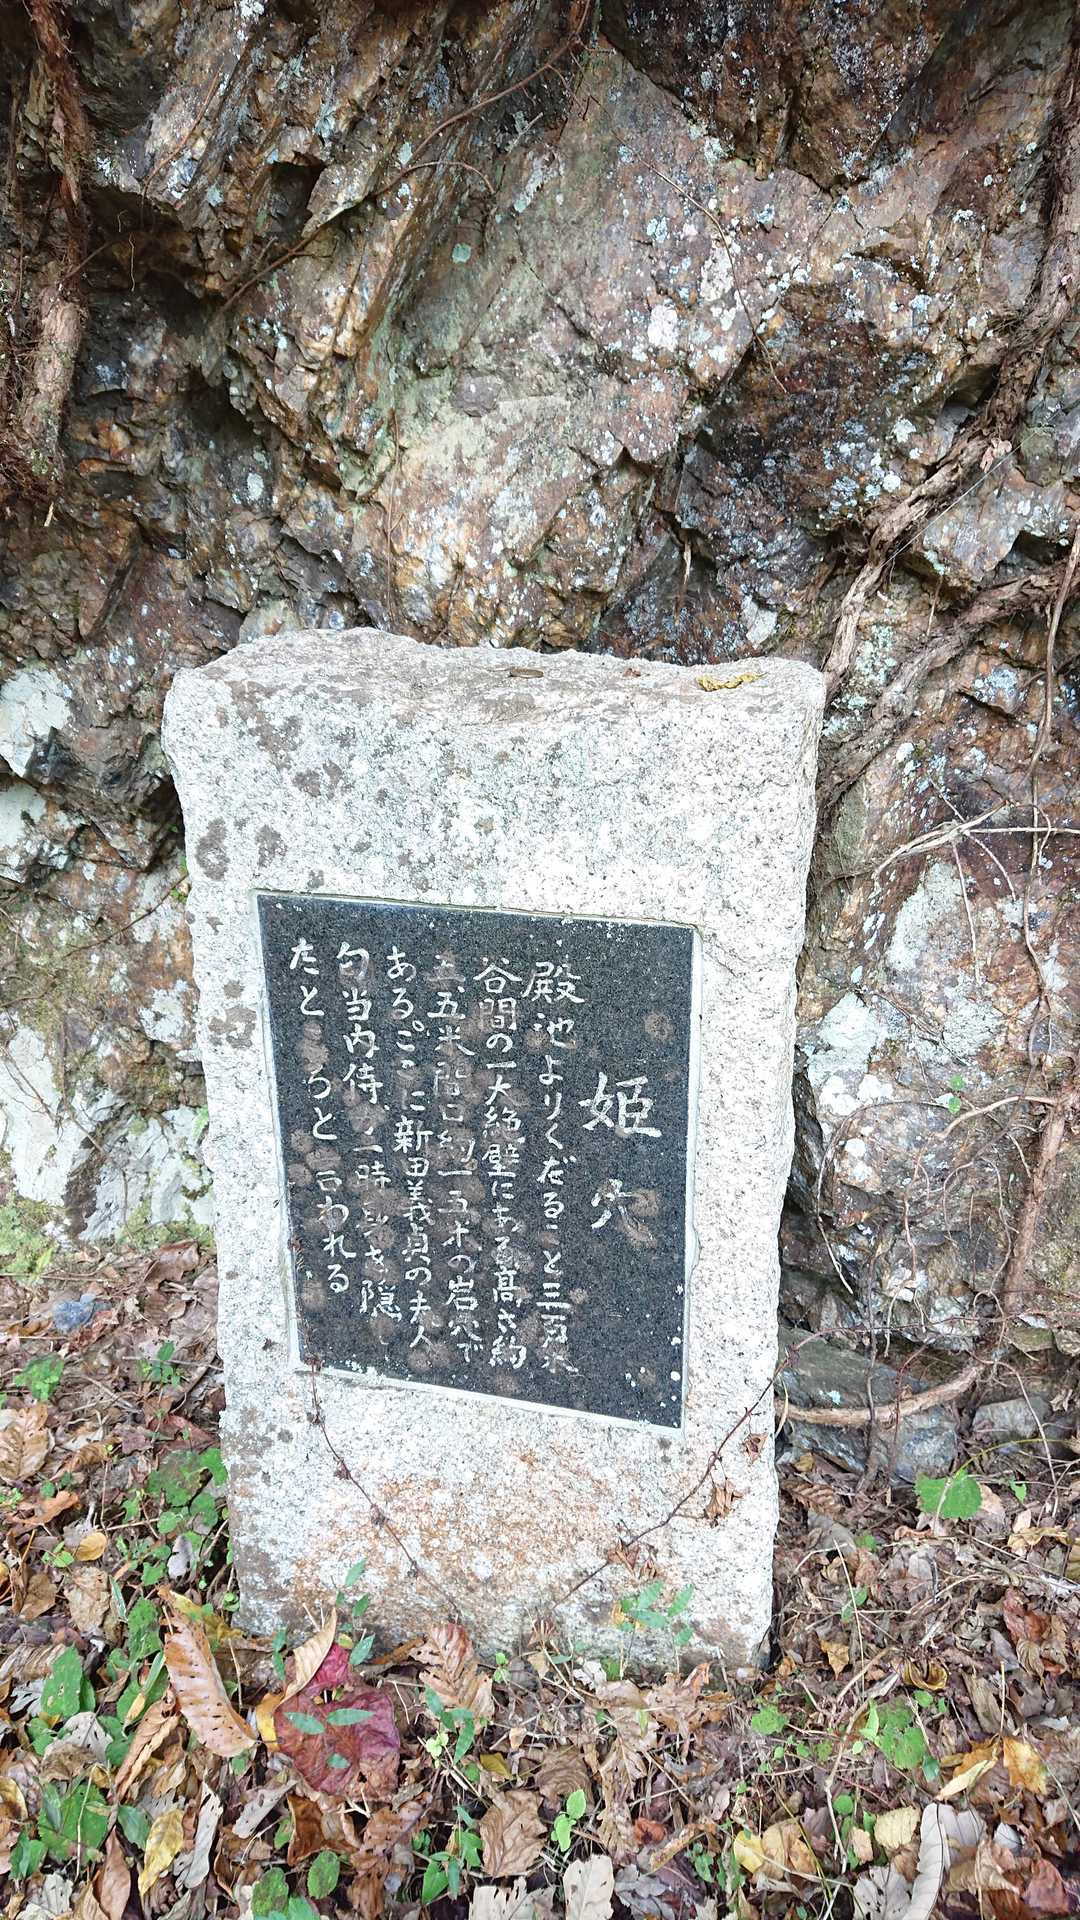 姫穴
殿池よりくだること三百米
谷間の一大絶壁にある高さ約
五.五米 間口約一五米の岩穴で
ある。ここに新田義貞の夫人
勾当内侍、一時身を隠し
たところと言われる